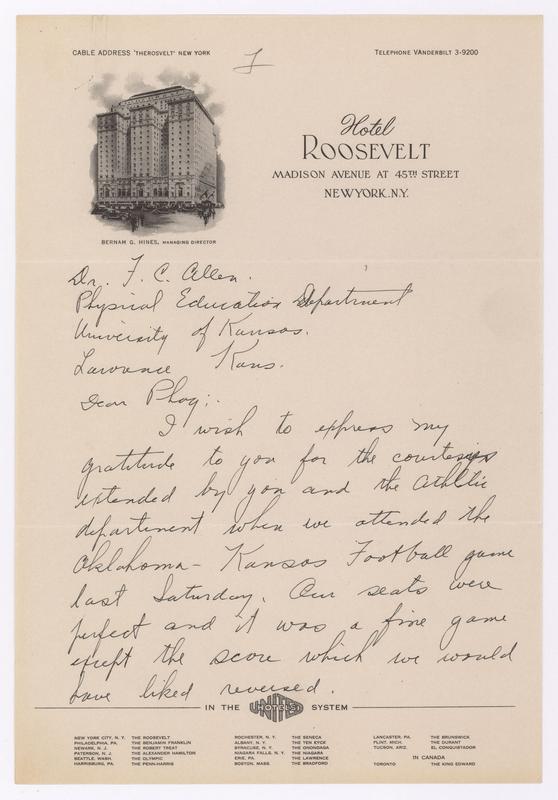 CABLE ADDRESS 'THEROSVELT' NEW YORK
TELEPHONE VANDERBILT 3-9200
Hotel
ROOSEVELT
MADISON AVENUE AT 45TH STREET
NEW YORK, N.Y.
BERNAM G. HINES, MANAGING DIRECTOR
Dr. F. C. Allen.
Physical Education Department
University of Kansas.
Lawrence Kans.
Dear Phog:.
I wish to express my
gratitude to you for the courtesies
extended by you and the Athletic
department when we attended the
Oklahoma - Kansas Football game
last Saturday. Our seats were
perfect and it was a fine game
except the score which we would
have liked reversed.
IN THE UNITED HOTELS SYSTEM
NEW YORK CITY, N. Y. THE ROOSEVELT
PHILADELPHIA, PA. THE BENJAMIN FRANKLIN
NEWARK, N. J. THE ROBERT TREAT
PATERSON, N. J. THE ALEXANDER HAMILTON
SEATTLE, WASH. THE OLYMPIC
HARRISBURG, PA. THE PENN-HARRIS
ROCHESTER, N. Y. THE SENECA
ALBANY, N. Y. THE TEN EYCK
SYRACUSE, N. Y. THE ONONDAGA
NIAGARA FALLS, N. Y. THE NIAGARA
ERIE, PA. THE LAWRENCE
BOSTON, MASS. THE BRADFORD
LANCASTER, PA. THE BRUNSWICK
FLINT, MICH. THE DURANT
TUCSON, ARIZ. EL CONQUISTADOR
IN CANADA
TORONTO THE KING EDWARD